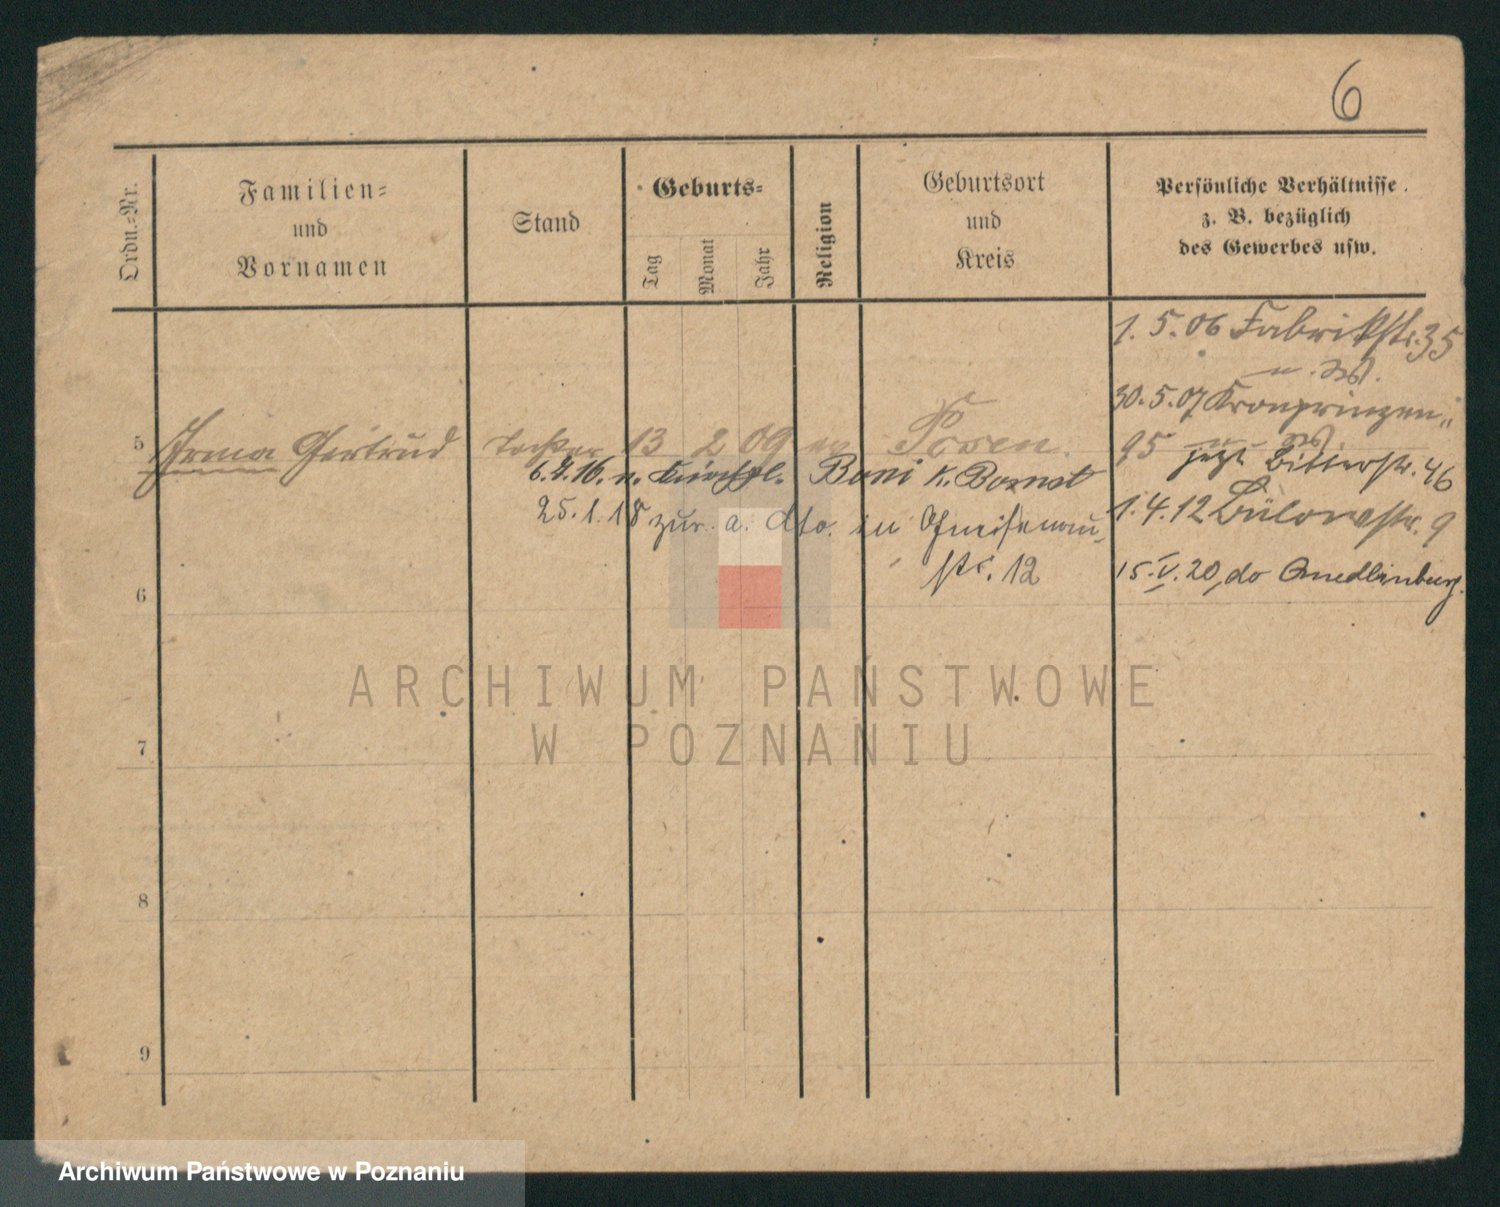 6
Ordn.=Nr.
Familien=
und
Vornamen
Stand
Geburts=
Tag
Monat
Jahr
Religion
Geburtsort
und
Kreis
Persönliche Verhältnisse
z. B. bezüglich
des Gewerbes usw.
1. 5. 06 Fabrikstr. 35
30. 5. 07 Kronprinzen
5 Irma Gertrud Tochter 13 2 09 ev Posen.
95 jetzt Bitterstr. 46
6. 4. 16. n. Kirchpl. Boni K. Bomst
1. 4. 12 Bülowstr. 9
25. 1. 18 zur. a. dto. in Gneisenau
str. 12
15. V. 20, do Quedlinburg.
6
7
8
9
ARCHIWUM PAŃSTWOWE
W POZNANIU
Archiwum Państwowe w Poznaniu